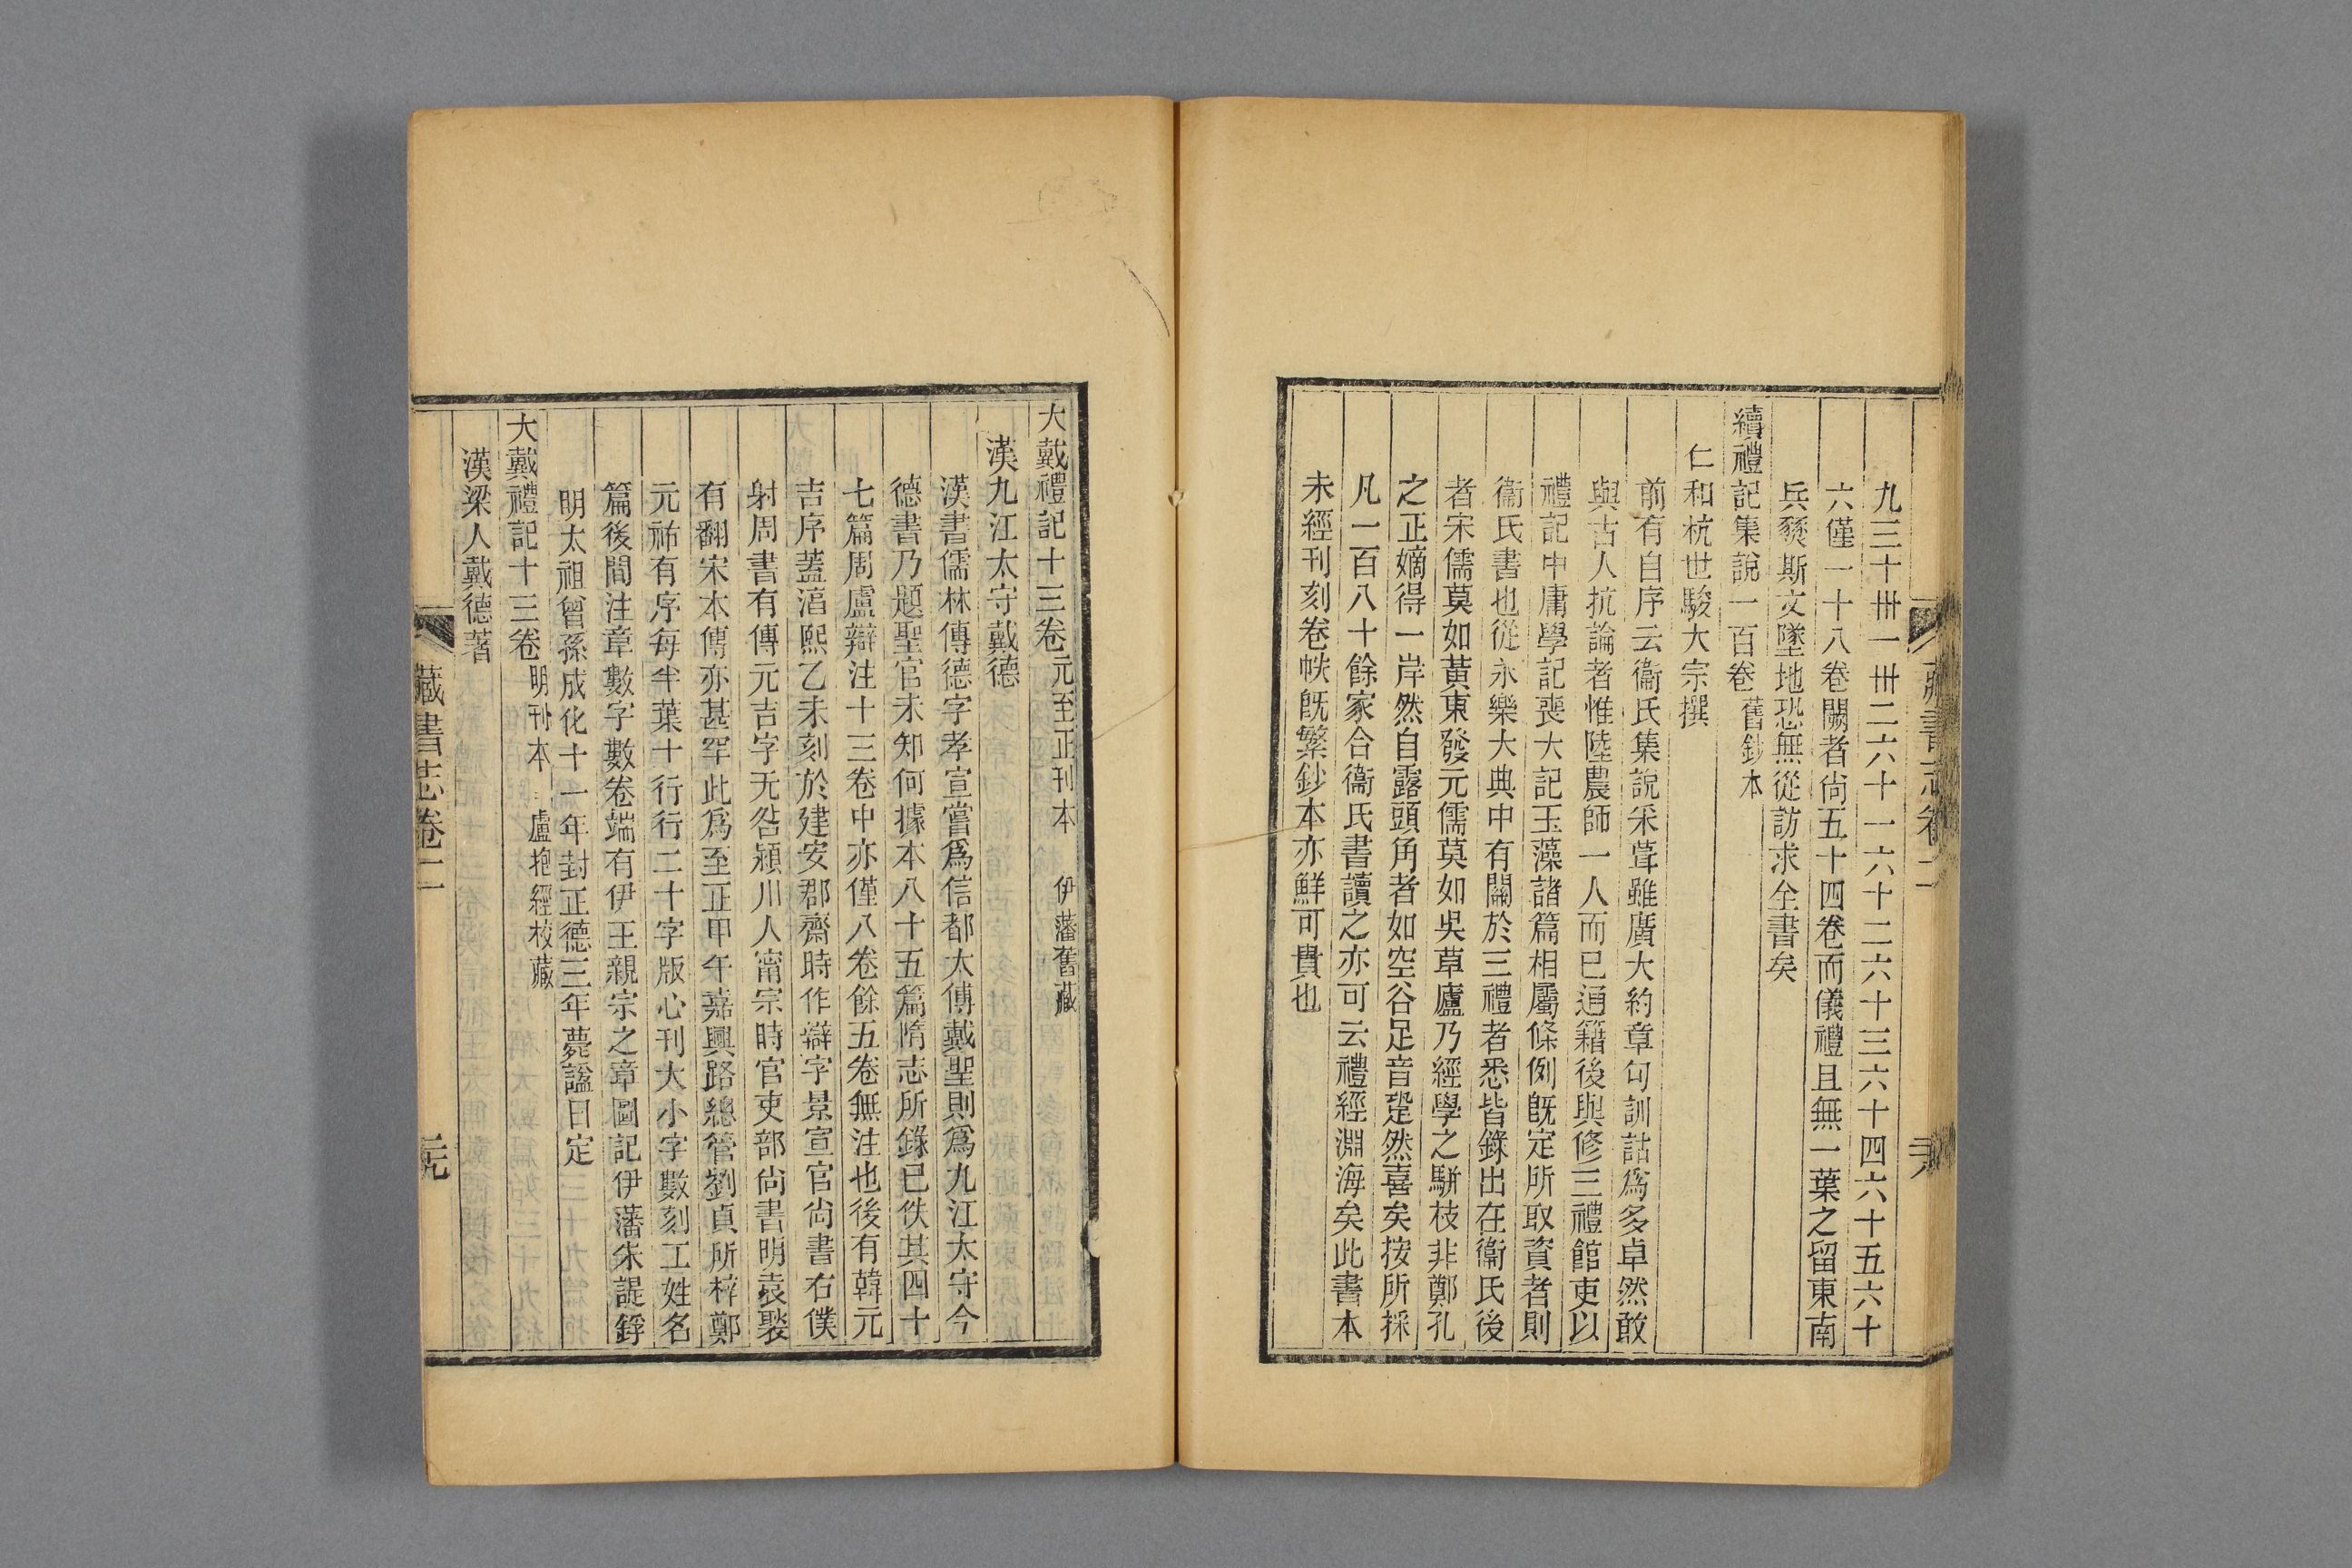 九三十卅一卅二六十一六十二六十三六十四六十五六十
六僅一十八卷闕者尙五十四卷而儀禮且無一葉之留東南
兵燹斯文墜地恐無從訪求全書矣
續禮記集說一百卷 舊鈔本
仁和杭世駿大宗撰
前有自序云衞氏集說采葺雖廣大約章句訓詁爲多卓然敢
與古人抗論者惟陸農師一人而已通籍後與修三禮館吏以
禮記中庸學記喪大記玉藻諸篇相屬條例旣定所取資者則
衞氏書也從永樂大典中有關於三禮者悉皆錄出在衞氏後
者宋儒莫如黃東發元儒莫如吳草廬乃經學之駢枝非鄭孔
之正嫡得一岸然自露頭角者如空谷足音跫然喜矣按所採
凡一百八十餘家合衞氏書讀之亦可云禮經淵海矣此書本
未經刊刻卷帙旣繁鈔本亦鮮可貴也
大戴禮記十三卷 元至正刊本 伊藩舊藏
漢九江太守戴德
漢書儒林傳德字孝宣嘗爲信都太傅戴聖則爲九江太守今
德書乃題聖官未知何據本八十五篇隋志所錄已佚其四十
七篇周盧辯注十三卷中亦僅八卷餘五卷無注也後有韓元
吉序蓋湻熙乙未刻於建安郡齋時作辯字景宣官尙書右僕
射周書有傳元吉字无咎潁川人甯宗時官吏部尙書明袁褧
有翻宋本傳亦甚罕此爲至正甲午嘉興路總管劉貞所梓鄭
元祐有序每半葉十行行二十字版心刊大小字數刻工姓名
篇後間注章數字數卷端有伊王親宗之章圖記伊藩朱諟鋝
明太祖曾孫成化十一年封正德三年薨諡曰定
大戴禮記十三卷 明刊本 盧抱經校藏
漢梁人戴德著
藏書志卷二